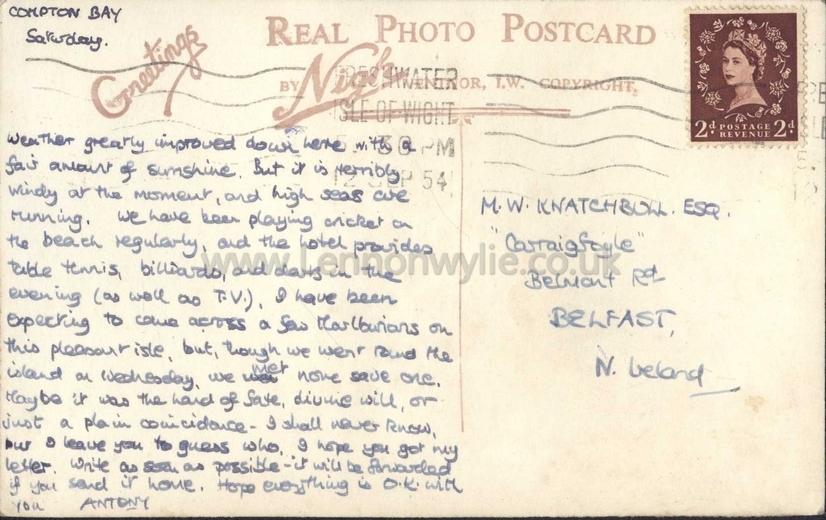 COMPTON BAY
Saturday.
Greetings
REAL PHOTO POSTCARD
BY Nigh VENTNOR, I.W. COPYRIGHT.
FRESHWATER
ISLE OF WIGHT
30 PM
12 SEP 54
2d POSTAGE REVENUE 2d
Weather greatly improved down here with a
fair amount of sunshine. But it is terribly
windy at the moment, and high seas are
running. We have been playing cricket on
the beach regularly, and the hotel provides
table tennis, billiards, and darts in the
evening (as well as T.V.). I have been
expecting to come across a few Marlburians on
this pleasant isle, but, though we went round the
island on Wednesday, we met none save one.
Maybe it was the hand of fate, divine will, or
just a plain coincidence - I shall never know,
but I leave you to guess who. I hope you got my
letter. Write as soon as possible - it will be forwarded
if you send it home. Hope everything is O.K. with
you ANTONY
M. W. KNATCHBULL. ESQ.
"Carraigfoyle"
Belmont Rd
BELFAST,
N. Ireland
www.Lennonwylie.co.uk